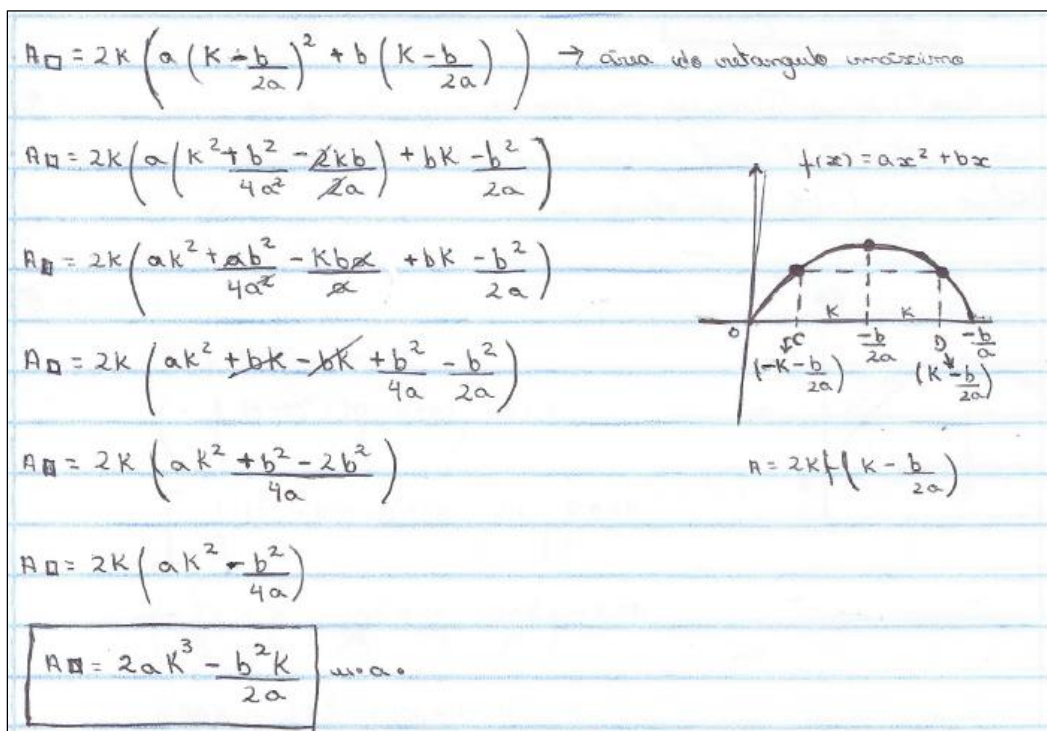 A□ = 2K (a (K - b/2a)² + b (K - b/2a)) → área do retangulo máximo
A□ = 2K (a (K² + b²/4a² - 2Kb/2a) + bK - b²/2a)
A□ = 2K (aK² + ab²/4a² - Kba/a + bK - b²/2a)
A□ = 2K (aK² + bK - bK + b²/4a - b²/2a)
A□ = 2K (aK² + b² - 2b²/4a)
A□ = 2K (aK² - b²/4a)
A□ = 2aK³ - b²K/2a u.a.
f(x) = ax² + bx
K K
0 C -b/2a D -b/a
(-K - b/2a) (K - b/2a)
A = 2Kf(K - b/2a)